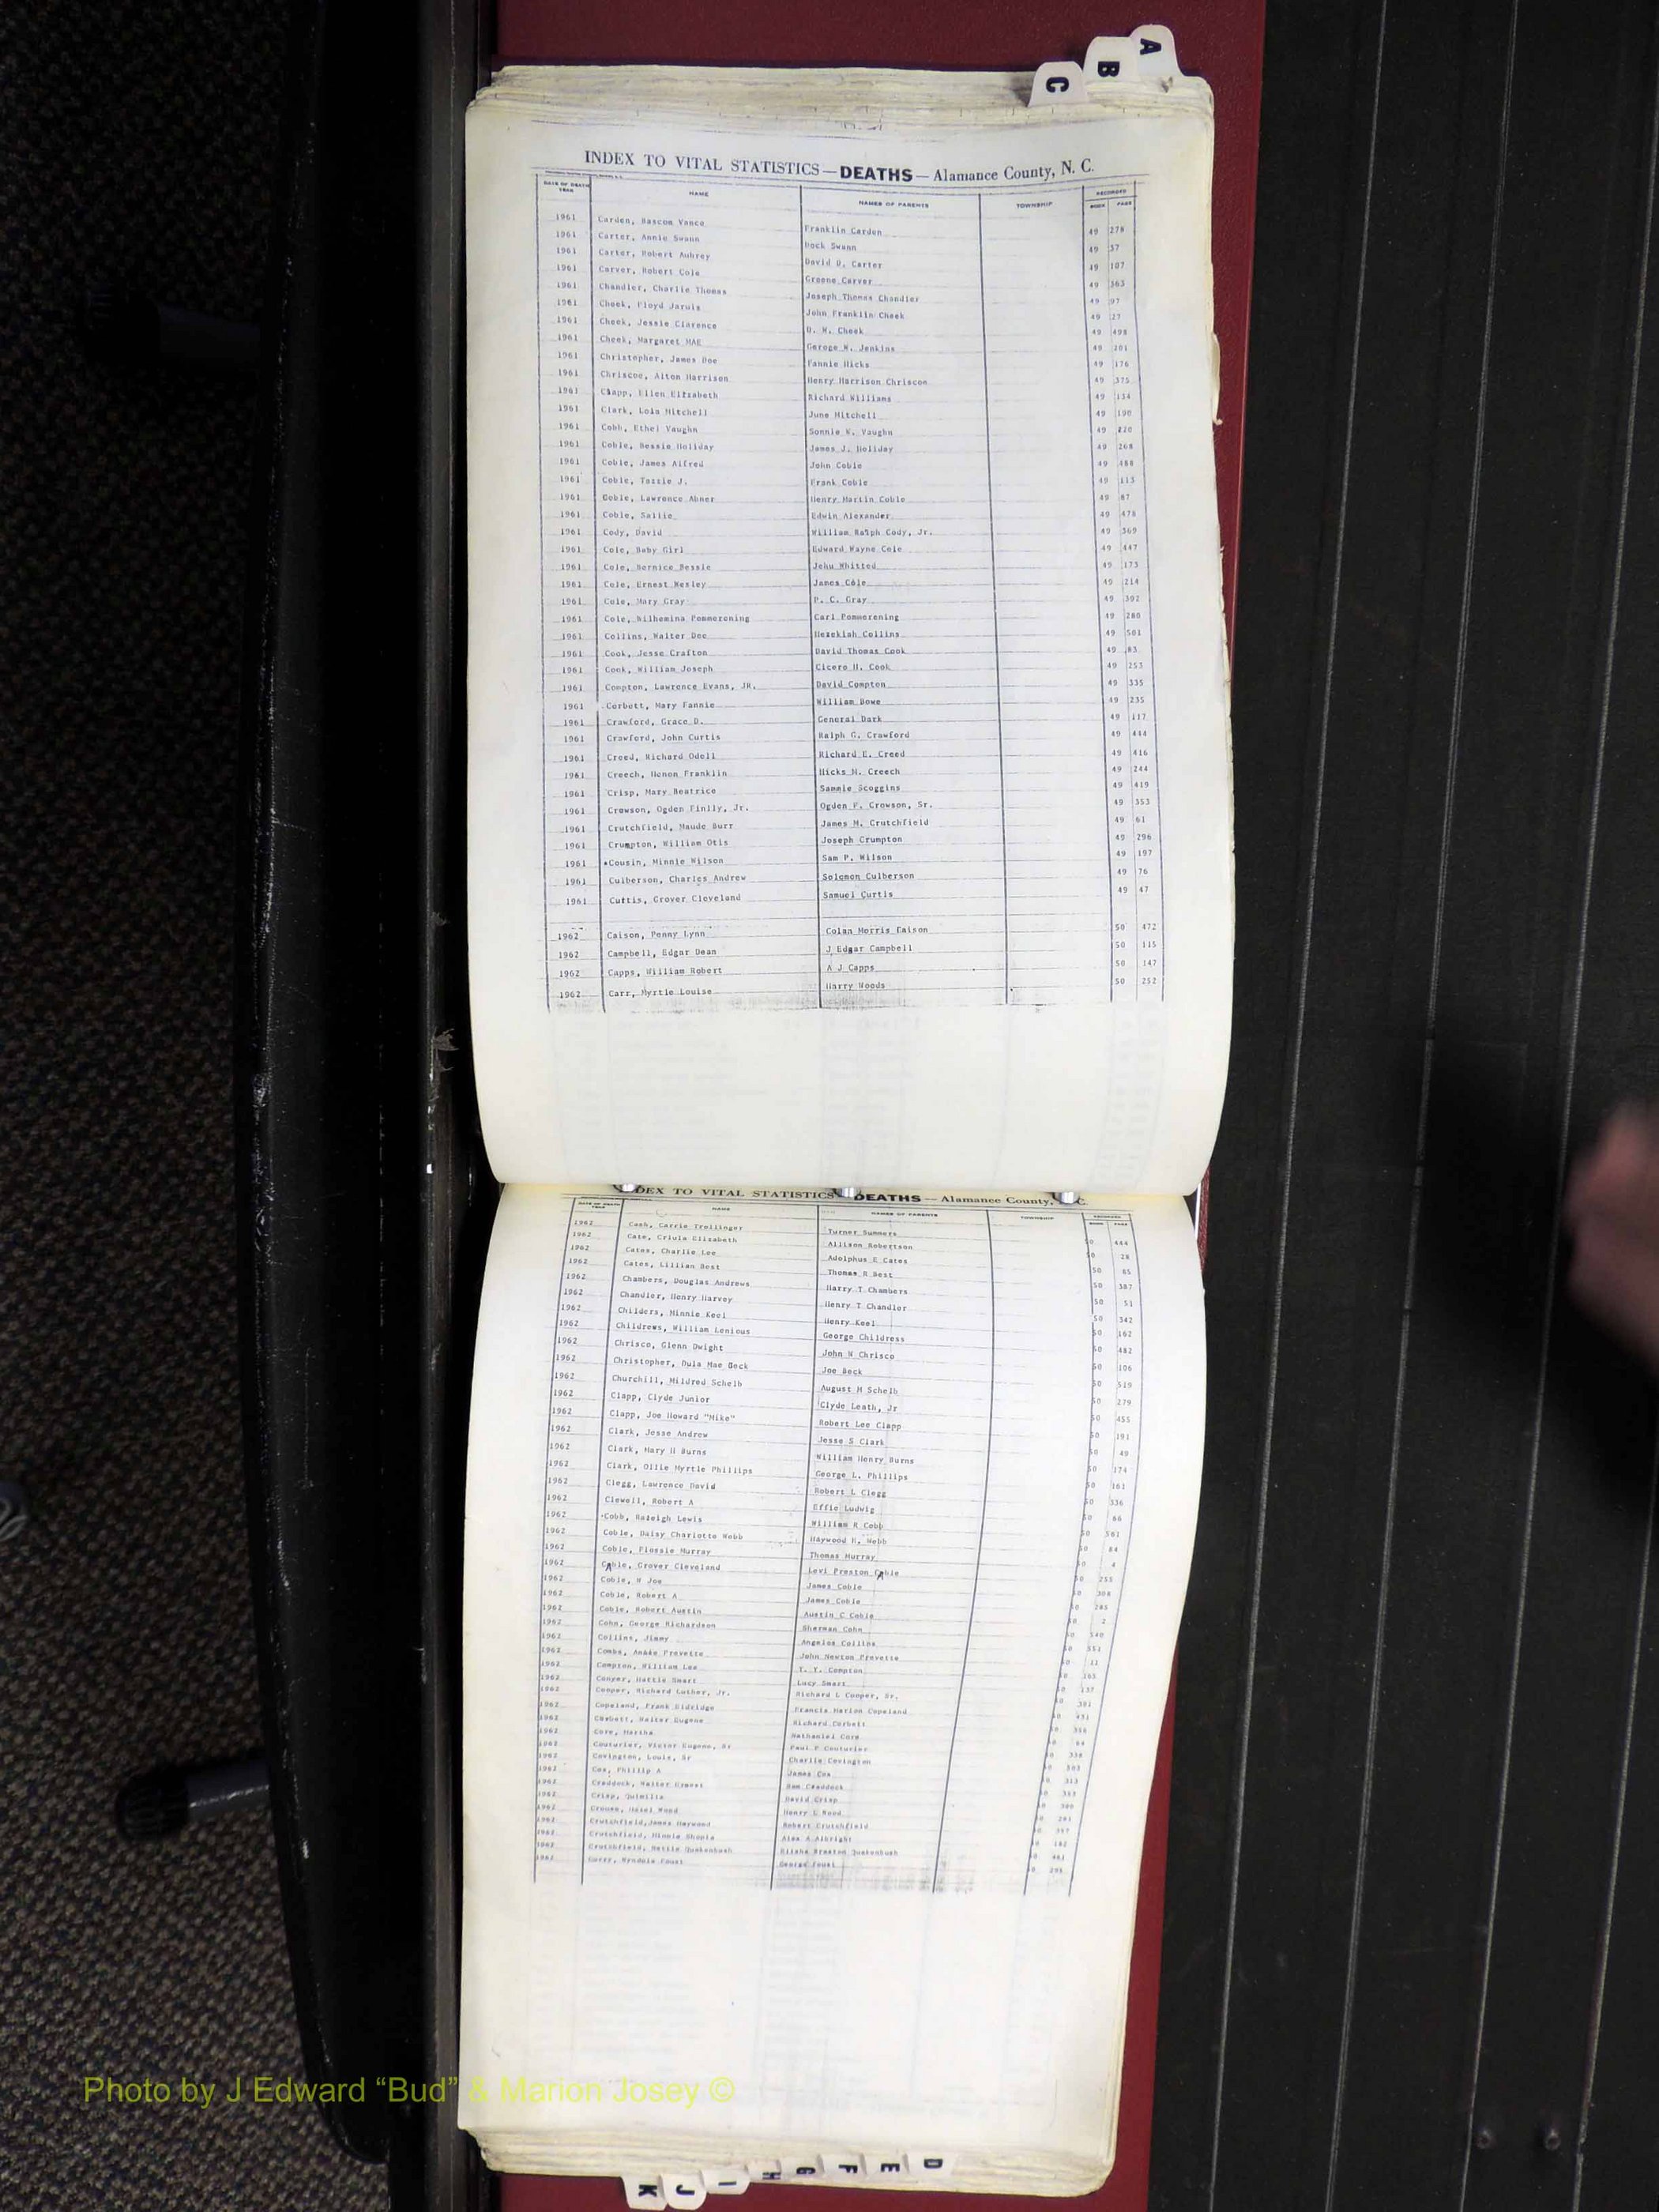 A
B
C
INDEX TO VITAL STATISTICS — DEATHS — Alamance County, N. C.
DATE OF DEATH YEAR NAME NAMES OF PARENTS TOWNSHIP RECORDED BOOK PAGE
1961 Carden, Bascom Vance Franklin Carden 49 278
1961 Carter, Annie Swann Dock Swann 49 37
1961 Carter, Robert Aubrey David D. Carter 49 107
1961 Carver, Robert Cole Greene Carver 49 363
1961 Chandler, Charlie Thomas Joseph Thomas Chandler 49 97
1961 Cheek, Floyd Jarvis John Franklin Cheek 49 27
1961 Cheek, Jessie Clarence D. W. Cheek 49 498
1961 Cheek, Margaret MAE Geroge W. Jenkins 49 201
1961 Christopher, James Doe Fannie Hicks 49 176
1961 Chriscoe, Alton Harrison Henry Harrison Chriscoe 49 375
1961 Clapp, Ellen Elizabeth Richard Williams 49 134
1961 Clark, Lola Mitchell June Mitchell 49 190
1961 Cobb, Ethel Vaughn Sonnie W. Vaughn 49 220
1961 Coble, Bessie Holiday James J. Holiday 49 268
1961 Coble, James Alfred John Coble 49 488
1961 Coble, Tazzie J. Frank Coble 49 113
1961 Coble, Lawrence Abner Henry Martin Coble 49 87
1961 Coble, Sallie Edwin Alexander 49 478
1961 Cody, David William Ralph Cody, Jr. 49 369
1961 Cole, Baby Girl Edward Wayne Cole 49 447
1961 Cole, Bernice Bessie John Whitted 49 173
1961 Cole, Ernest Wesley James Cole 49 214
1961 Cole, Mary Gray P. C. Gray 49 392
1961 Cole, Wilhemina Pommerening Carl Pommerening 49 280
1961 Collins, Walter Dee Hezekiah Collins 49 501
1961 Cook, Jesse Crafton David Thomas Cook 49 83
1961 Cook, William Joseph Cicero H. Cook 49 253
1961 Compton, Lawrence Evans, JR. David Compton 49 335
1961 Corbett, Mary Fannie William Dowe 49 235
1961 Crawford, Grace D. General Dark 49 117
1961 Crawford, John Curtis Ralph G. Crawford 49 444
1961 Creed, Richard Odell Richard E. Creed 49 416
1961 Creech, Henon Franklin Hicks H. Creech 49 244
1961 Crisp, Mary Beatrice Sammie Scoggins 49 419
1961 Crowson, Ogden Finlly, Jr. Ogden F. Crowson, Sr. 49 353
1961 Crutchfield, Maude Burr James M. Crutchfield 49 61
1961 Crumpton, William Otis Joseph Crumpton 49 296
1961 Cousin, Minnie Wilson Sam P. Wilson 49 197
1961 Culberson, Charles Andrew Solomon Culberson 49 76
1961 Curtis, Grover Cleveland Samuel Curtis 49 47
1962 Caison, Penny Lynn Colan Morris Caison 50 472
1962 Campbell, Edgar Dean J Edgar Campbell 50 115
1962 Capps, William Robert A J Capps 50 147
1962 Carr, Myrtle Louise Harry Woods 50 252
DEX TO VITAL STATISTICS DEATHS — Alamance County, C.
DATE OF DEATH YEAR NAME NAMES OF PARENTS TOWNSHIP RECORDED BOOK PAGE
1962 Cash, Carrie Trollinger Turner Summers 0 444
1962 Cate, Criula Elizabeth Allison Robertson 0 28
1962 Cates, Charlie Lee Adolphus E Cates 50 85
1962 Cates, Lillian Best Thomas R Best 50 387
1962 Chambers, Douglas Andrews Harry T Chambers 50 51
1962 Chandler, Henry Harvey Henry T Chandler 50 342
1962 Childers, Minnie Keel Henry Keel 50 162
1962 Childress, William Lenious George Childress 50 482
1962 Chrisco, Glenn Dwight John W Chrisco 50 106
1962 Christopher, Dula Mae Beck Joe Beck 50 519
1962 Churchill, Mildred Schelb August H Schelb 50 279
1962 Clapp, Clyde Junior Clyde Leath, Jr 50 455
1962 Clapp, Joe Howard "Mike" Robert Lee Clapp 50 191
1962 Clark, Jesse Andrew Jesse S Clark 50 49
1962 Clark, Mary H Burns William Henry Burns 50 174
1962 Clark, Ollie Myrtle Phillips George L. Phillips 50 161
1962 Clegg, Lawrence David Robert L Clegg 50 336
1962 Clewell, Robert A Effie Ludwig 50 66
1962 Cobb, Raleigh Lewis William R Cobb 50 561
1962 Coble, Daisy Charlotte Webb Haywood H. Webb 50 84
1962 Coble, Flossie Murray Thomas Murray 50 4
1962 Cable, Grover Cleveland Levi Preston Cable 50 255
1962 Coble, H Joe James Coble 50 308
1962 Coble, Robert A James Coble 50 285
1962 Coble, Robert Austin Austin C Coble 50 2
1962 Cohn, George Richardson Sherman Cohn 50 540
1962 Collins, Jimmy Angelos Collins 50 551
1962 Combs, Prevette John Newton Prevette 50 11
1962 Compton, William Lee T. Y. Compton 50 165
1962 Conyer, Hattie Smart Lucy Smart 50 137
1962 Cooper, Richard Luther, Jr. Richard L Cooper, Sr. 50 381
1962 Copeland, Frank Eldridge Francis Marion Copeland 50 451
1962 Corbett, Walter Eugene Richard Corbett
1962 Core, Martha Nathaniel Core
1962 Couturier, Victor Eugene, Sr Paul F Couturier
1962 Covington, Louis, Sr Charlie Covington
1962 Cox, Phillip A James Cox 313
1962 Craddock, Walter Ernest Sam Craddock
1962 Crisp, Quimilla David Crisp
1962 Crouse, Hazel Wood Henry L Wood
1962 Crutchfield, James Haywood Robert Crutchfield
1962 Crutchfield, Minnie Shopia Alex A Albright
1962 Crutchfield, Hattie Quakenbush Elisha Braxton Quakenbush
1962 Foust George Foust
Photo by J Edward “Bud” & Marion Josey ©
D
E
F
G
H
I
J
K